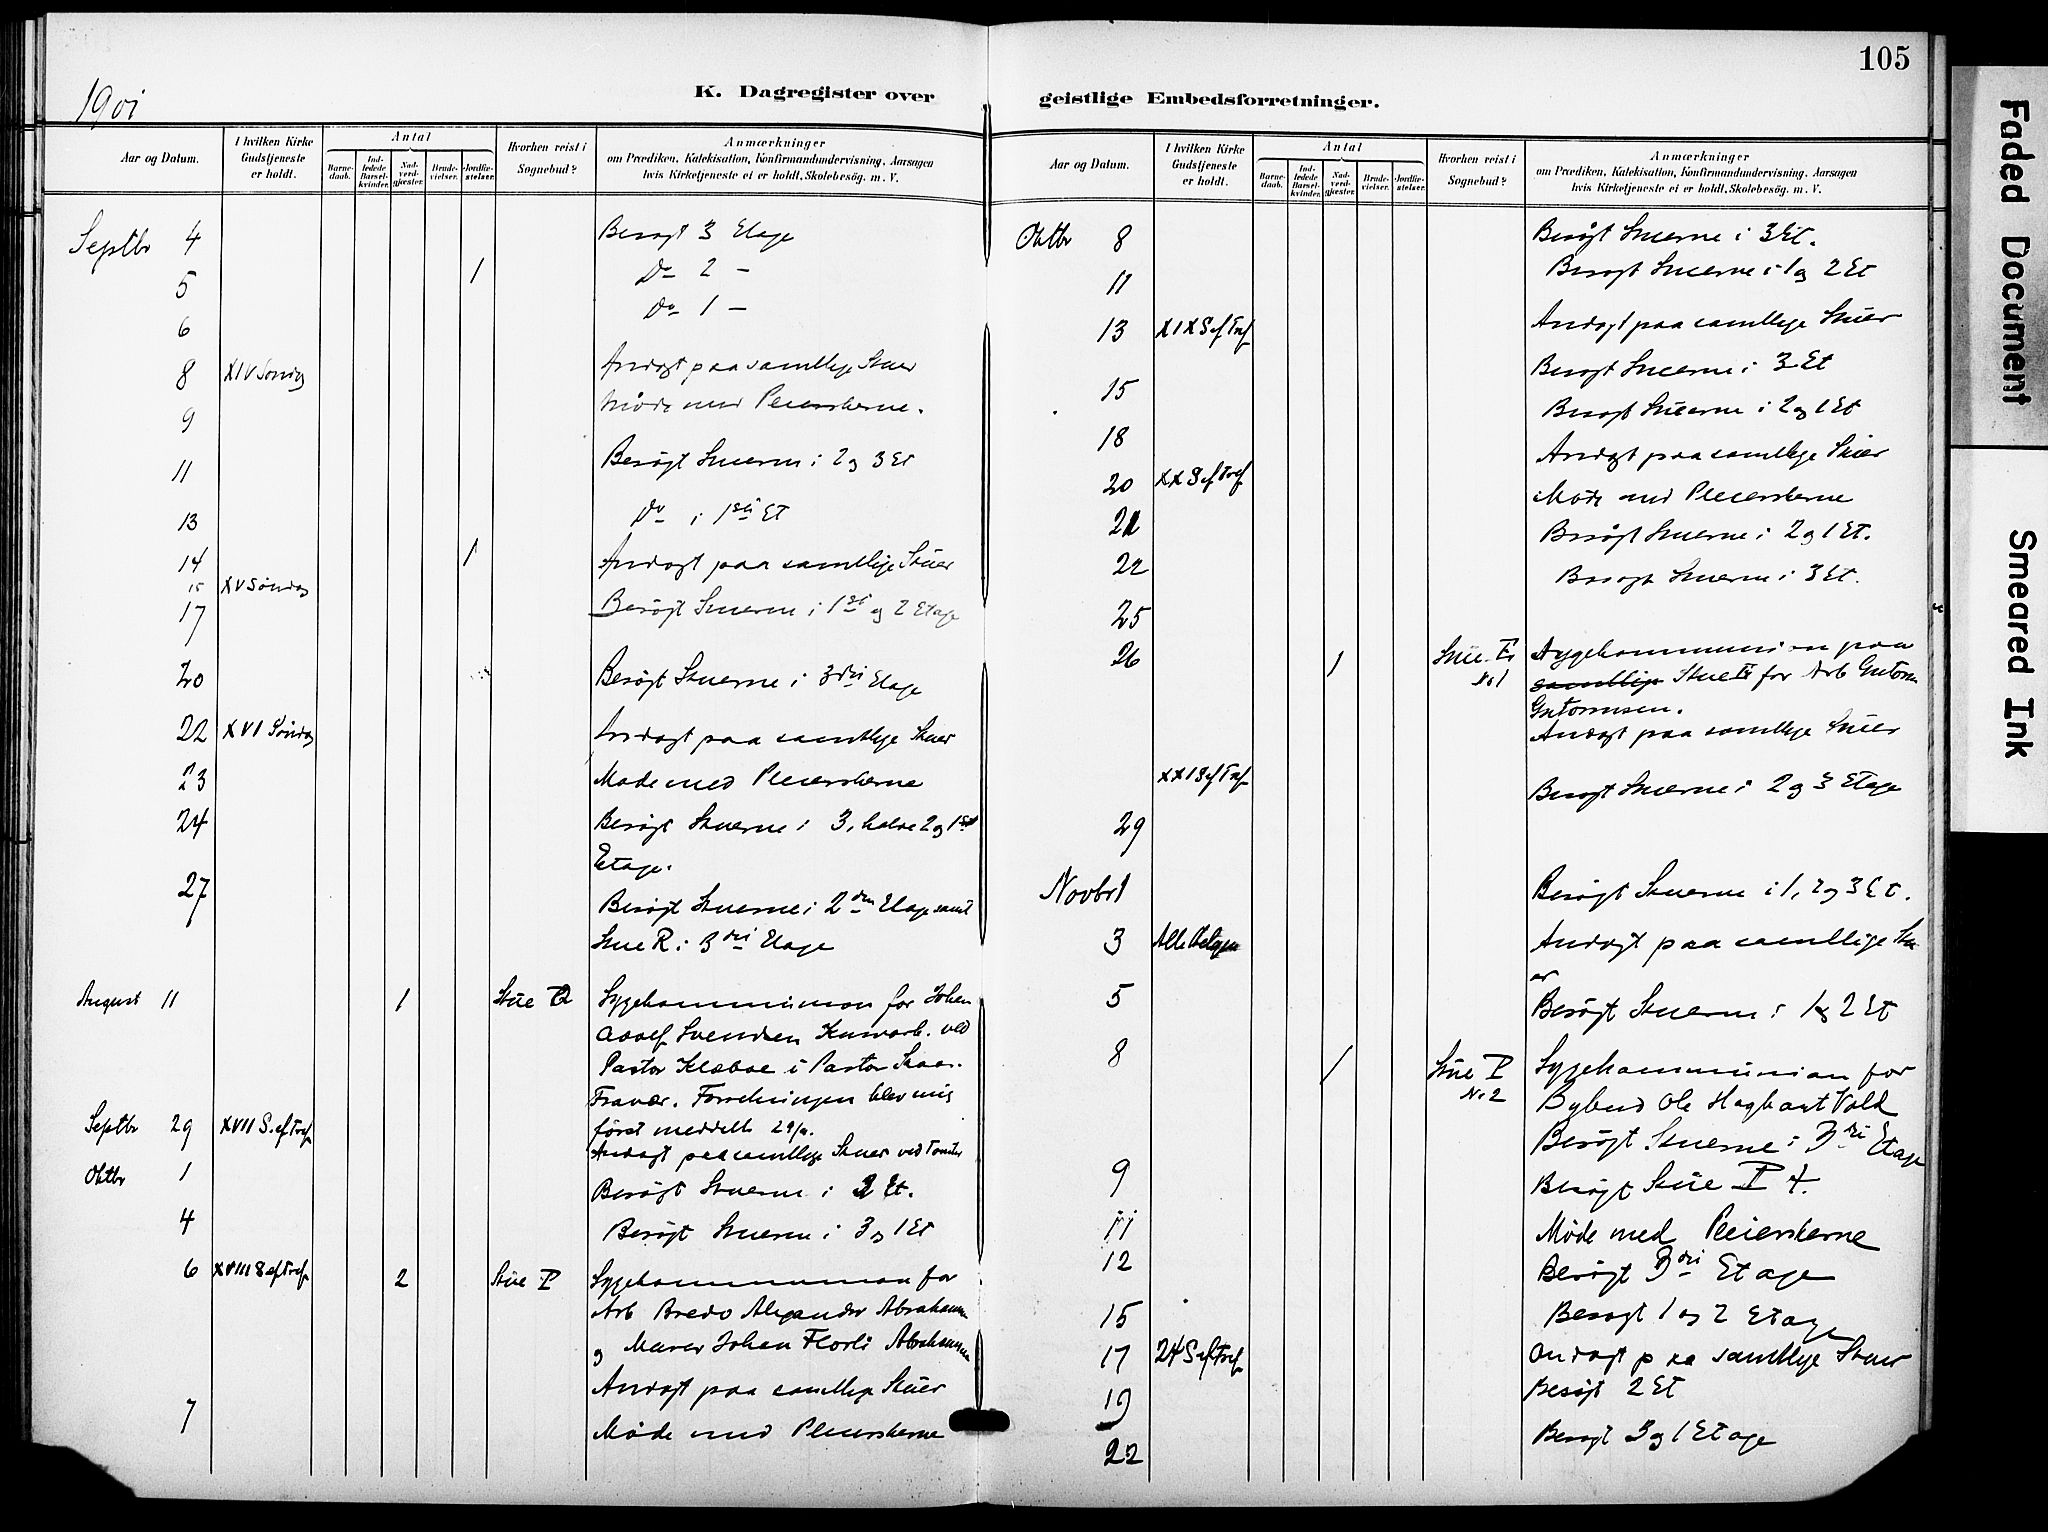 105
1901
K. Dagregister over geistlige Embedsforretninger.
Aar og Datum.
I hvilken Kirke Gudstjeneste er holdt.
Antal
Barne-daab.
Ind-ledede Barsel-kvinder.
Nad-verd-gjæster.
Brude-vielser.
Jordfæ-stelser.
Hvorhen reist i Sognebud?
Anmærkninger
om Prædiken, Katekisation, Konfirmandundervisning, Aarsagen
hvis Kirketjeneste ei er holdt, Skolebesøg. m. V.
Septbr 4 Besøgt 3 Etage
5 1 Do 2 -
6 Do 1 -
8 XIV Søndag Andagt paa samtlige Stuer
9 Møde med Pleierskerne.
11 Besøgt Stuerne i 2 og 3 Et
13 Do i 1ste Et
14 1 Andagt paa samtlige Stuer
15 XV Søndag
17 Besøgt Stuerne i 1ste og 2 Etage
20 Besøgt Stuerne i 3die Etage
22 XVI Søndag Andagt paa samtlige Stuer
23 Møde med Pleierskerne
24 Besøgt Stuerne i 3, halve 2 og 1ste
Etage.
27 Besøgt Stuerne i 2den Etage samt
Stue R i 3die Etage
August 11 1 Stue Q Sygekommunion for Johan
Adolf Svendsen ved
Pastor Klæboe i Pastor
Fravær. Forretningen blev mig
først meddelt 29/9.
Septbr 29 XVII S. ef Tref Andagt paa samtlige Stuer
Oktbr 1 Besøgt Stuerne i 2 Et.
4 Besøgt Stuerne i 3 og 1 Et
6 XVIII S ef Tref 2 Stue P Sygekommunion for
Arb Bredo Alexander Abrahamsen
og Murer Johan Abrahamsen
Andagt paa samtlige Stuer
7 Møde med Pleierskerne
Aar og Datum.
I hvilken Kirke Gudstjeneste er holdt.
Antal
Barne-daab.
Ind-ledede Barsel-kvinder.
Nad-verd-gjæster.
Brude-vielser.
Jordfæ-stelser.
Hvorhen reist i Sognebud?
Anmærkninger
om Prædiken, Katekisation, Konfirmandundervisning, Aarsagen
hvis Kirketjeneste ei er holdt, Skolebesøg. m. V.
Oktbr 8 Besøgt Stuerne i 3 Et.
11 Besøgt Stuerne i 1 og 2 Et
13 XIX S ef Tref Andagt paa samtlige Stuer
15 Besøgt Stuerne i 3 Et
18 Besøgt Stuerne i 2 og 1 Et
20 XX S ef Tref Andagt paa samtlige Stuer
21 Møde med Pleierskerne
22 Besøgt Stuerne i 2 og 1 Et.
25 Besøgt Stuerne i 3 Et.
26 1 Stue No 1 Sygekommunion paa
samtlige Stue for Arb Guttorm
Guttormsen.
XXI S ef Tref Andagt paa samtlige Stuer
29 Besøgt Stuerne i 2 og 3 Etage
Novbr 1 Besøgt Stuerne i 1, 2 og 3 Et.
3 Alle Helgen Andagt paa samtlige Stu-
er
5 Besøgt Stuerne i 1 og 2 Et
8 1 Stue P No 2 Sygekommunion for
Bybud Ole Vold
Besøgt Stuerne i 3die Etage
9 Besøgt Stue P 4.
11 Møde med Pleierskerne
12 Besøgt 3die Etage
15 Besøgt 1 og 2 Etage
17 24 S ef Tref Andagt paa samtlige Stuer
19 Besøgt 2 Et
22 Besøgt 3 og 1 Etage
Faded Document
Smeared Ink